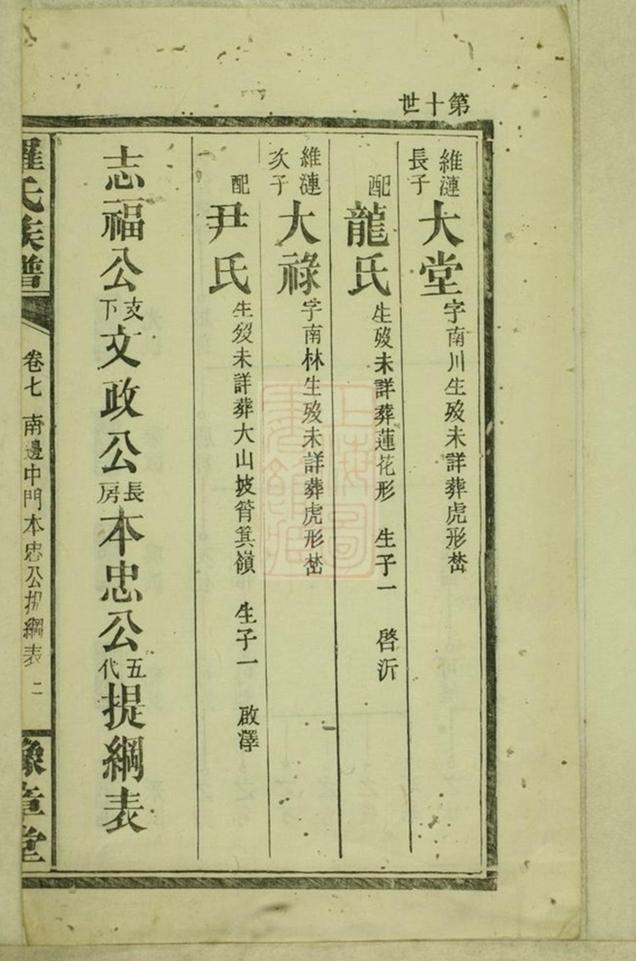 第十世
維漣長子 大堂 字南川生殁未詳葬虎形嵆
配 龍氏 生殁未詳葬蓮花形 生子一 啓沂
維漣次子 大祿 字南林生殁未詳葬虎形嵆
配 尹氏 生殁未詳葬大山披筲箕嶺 生子一 啟澤
志福公支下文政公長房本忠公五代提綱表
羅氏族譜 卷七 南邊中門本忠公提綱表 二 豫章堂